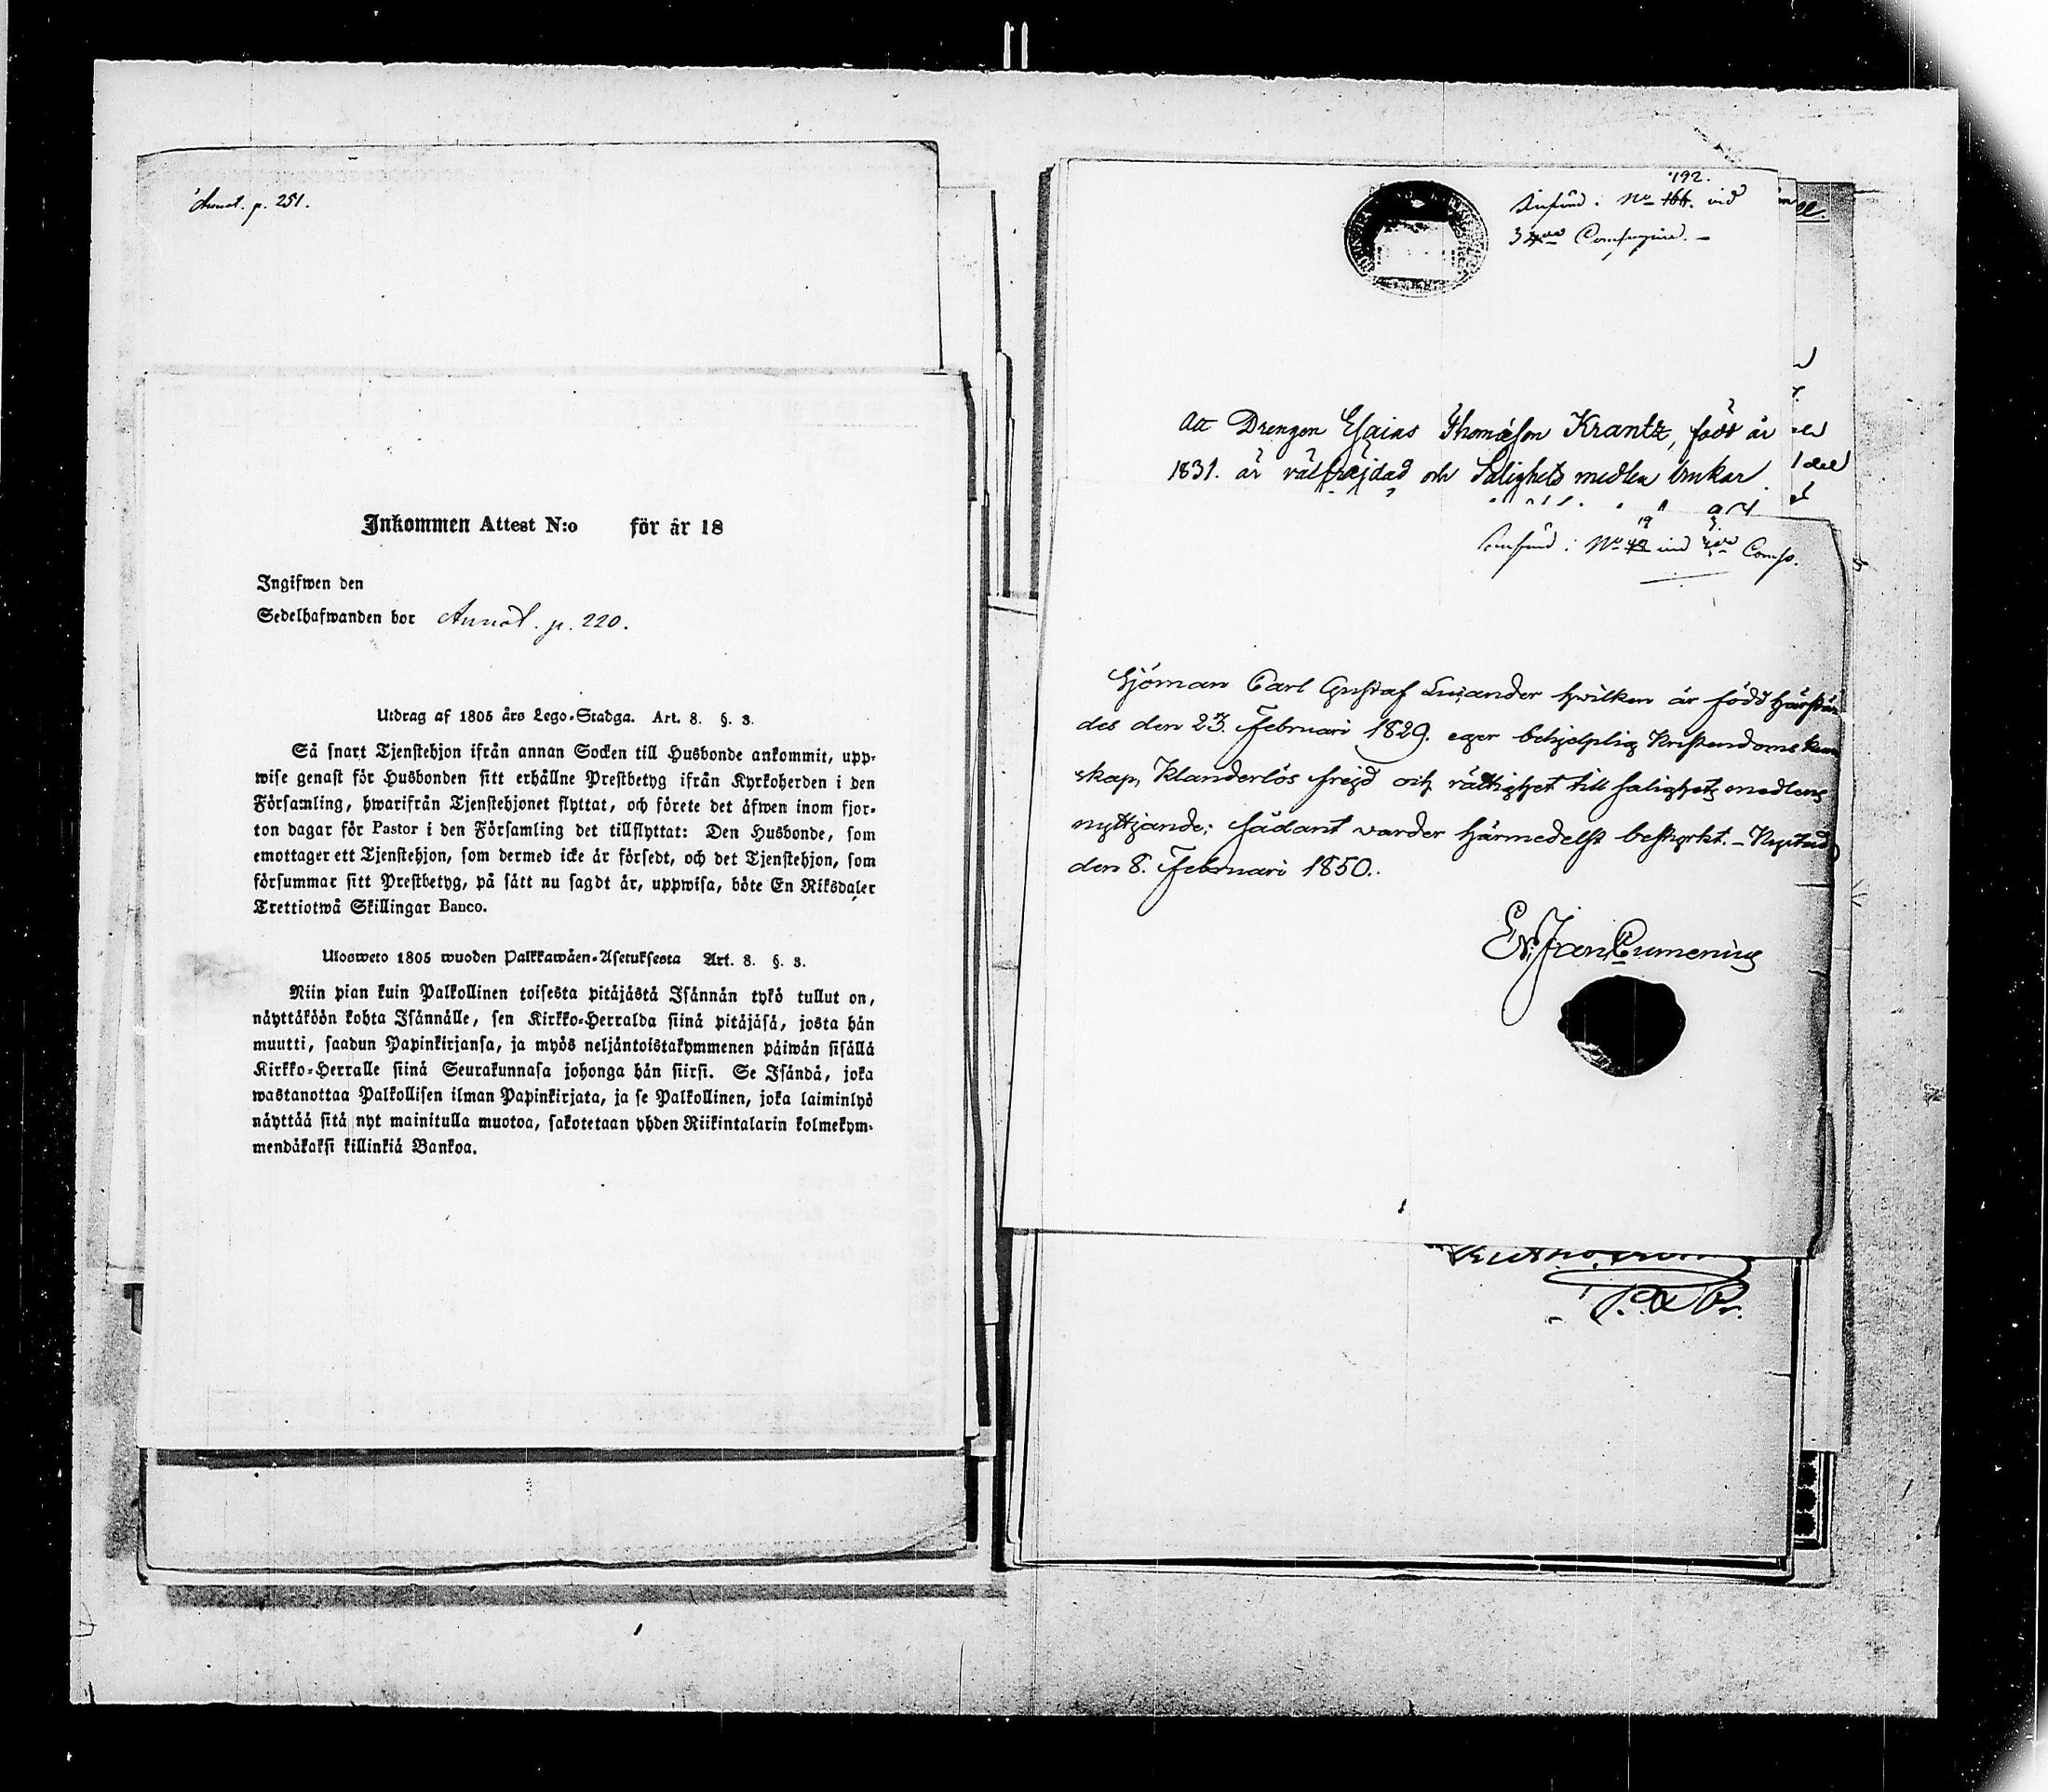 Annot. p. 251.
Inkommen Attest N:o för år 18
Ingifwen den
Sedelhafwanden bor Annot. p. 220.
Utdrag af 1805 års Lego-Stadga. Art. 8. §. 3.
Så snart Tjenstehjon ifrån annan Socken till Husbonde ankommit, upp-
wise genast för Husbonden sitt erhållne Prestbetyg ifrån Kyrkoherden i den
Församling, hwarifrån Tjenstehjonet flyttat, och förete det äfwen inom fjor-
ton dagar för Pastor i den Församling det tillflyttat: Den Husbonde, som
emottager ett Tjenstehjon, som dermed icke är försedt, och det Tjenstehjon, som
försummar sitt Prestbetyg, på sätt nu sagdt är, uppwisa, böte En Riksdaler
Trettiotwå Skillingar Banco.
Ulosweto 1805 wuoden Palkkawäen-Asetuksesta Art. 8. §. 3.
Niin pian kuin Palkollinen toisesta pitäjästä Isännän tykö tullut on,
näyttäköön kohta Isännälle, sen Kirkko-Herralda siinä pitäjäsä, josta hän
muutti, saadun Papinkirjansa, ja myös neljäntoistakymmenen päiwän sisällä
Kirkko-Herralle siinä Seurakunnasa johonga hän siirsi. Se Isändä, joka
wastanottaa Palkollisen ilman Papinkirjata, ja se Palkollinen, joka laiminlyö
näyttää sitä nyt mainitulla muotoa, sakotetaan yhden Riikintalarin kolmekym-
mendäkaksi killinkiä Bankoa.
192.
No 166. vid
3 Compagnie.
Att Drengen Esaias Thomasson Krantz, född år
1831. är välfräjdad och Salighets medlen brukar
19 3.
No 42 vid Comp.
Sjöman Carl Gustaf Lusander hwilken är född härstä-
des den 23. Februari 1829. eger behjelplig Kristendoms kun
skap, Klanderlös frejd och rättighet till salighets medlens
nyttjande; sådant varder härmedelst bestyrkt. – Nystad
den 8. Februari 1850.
Cumenius